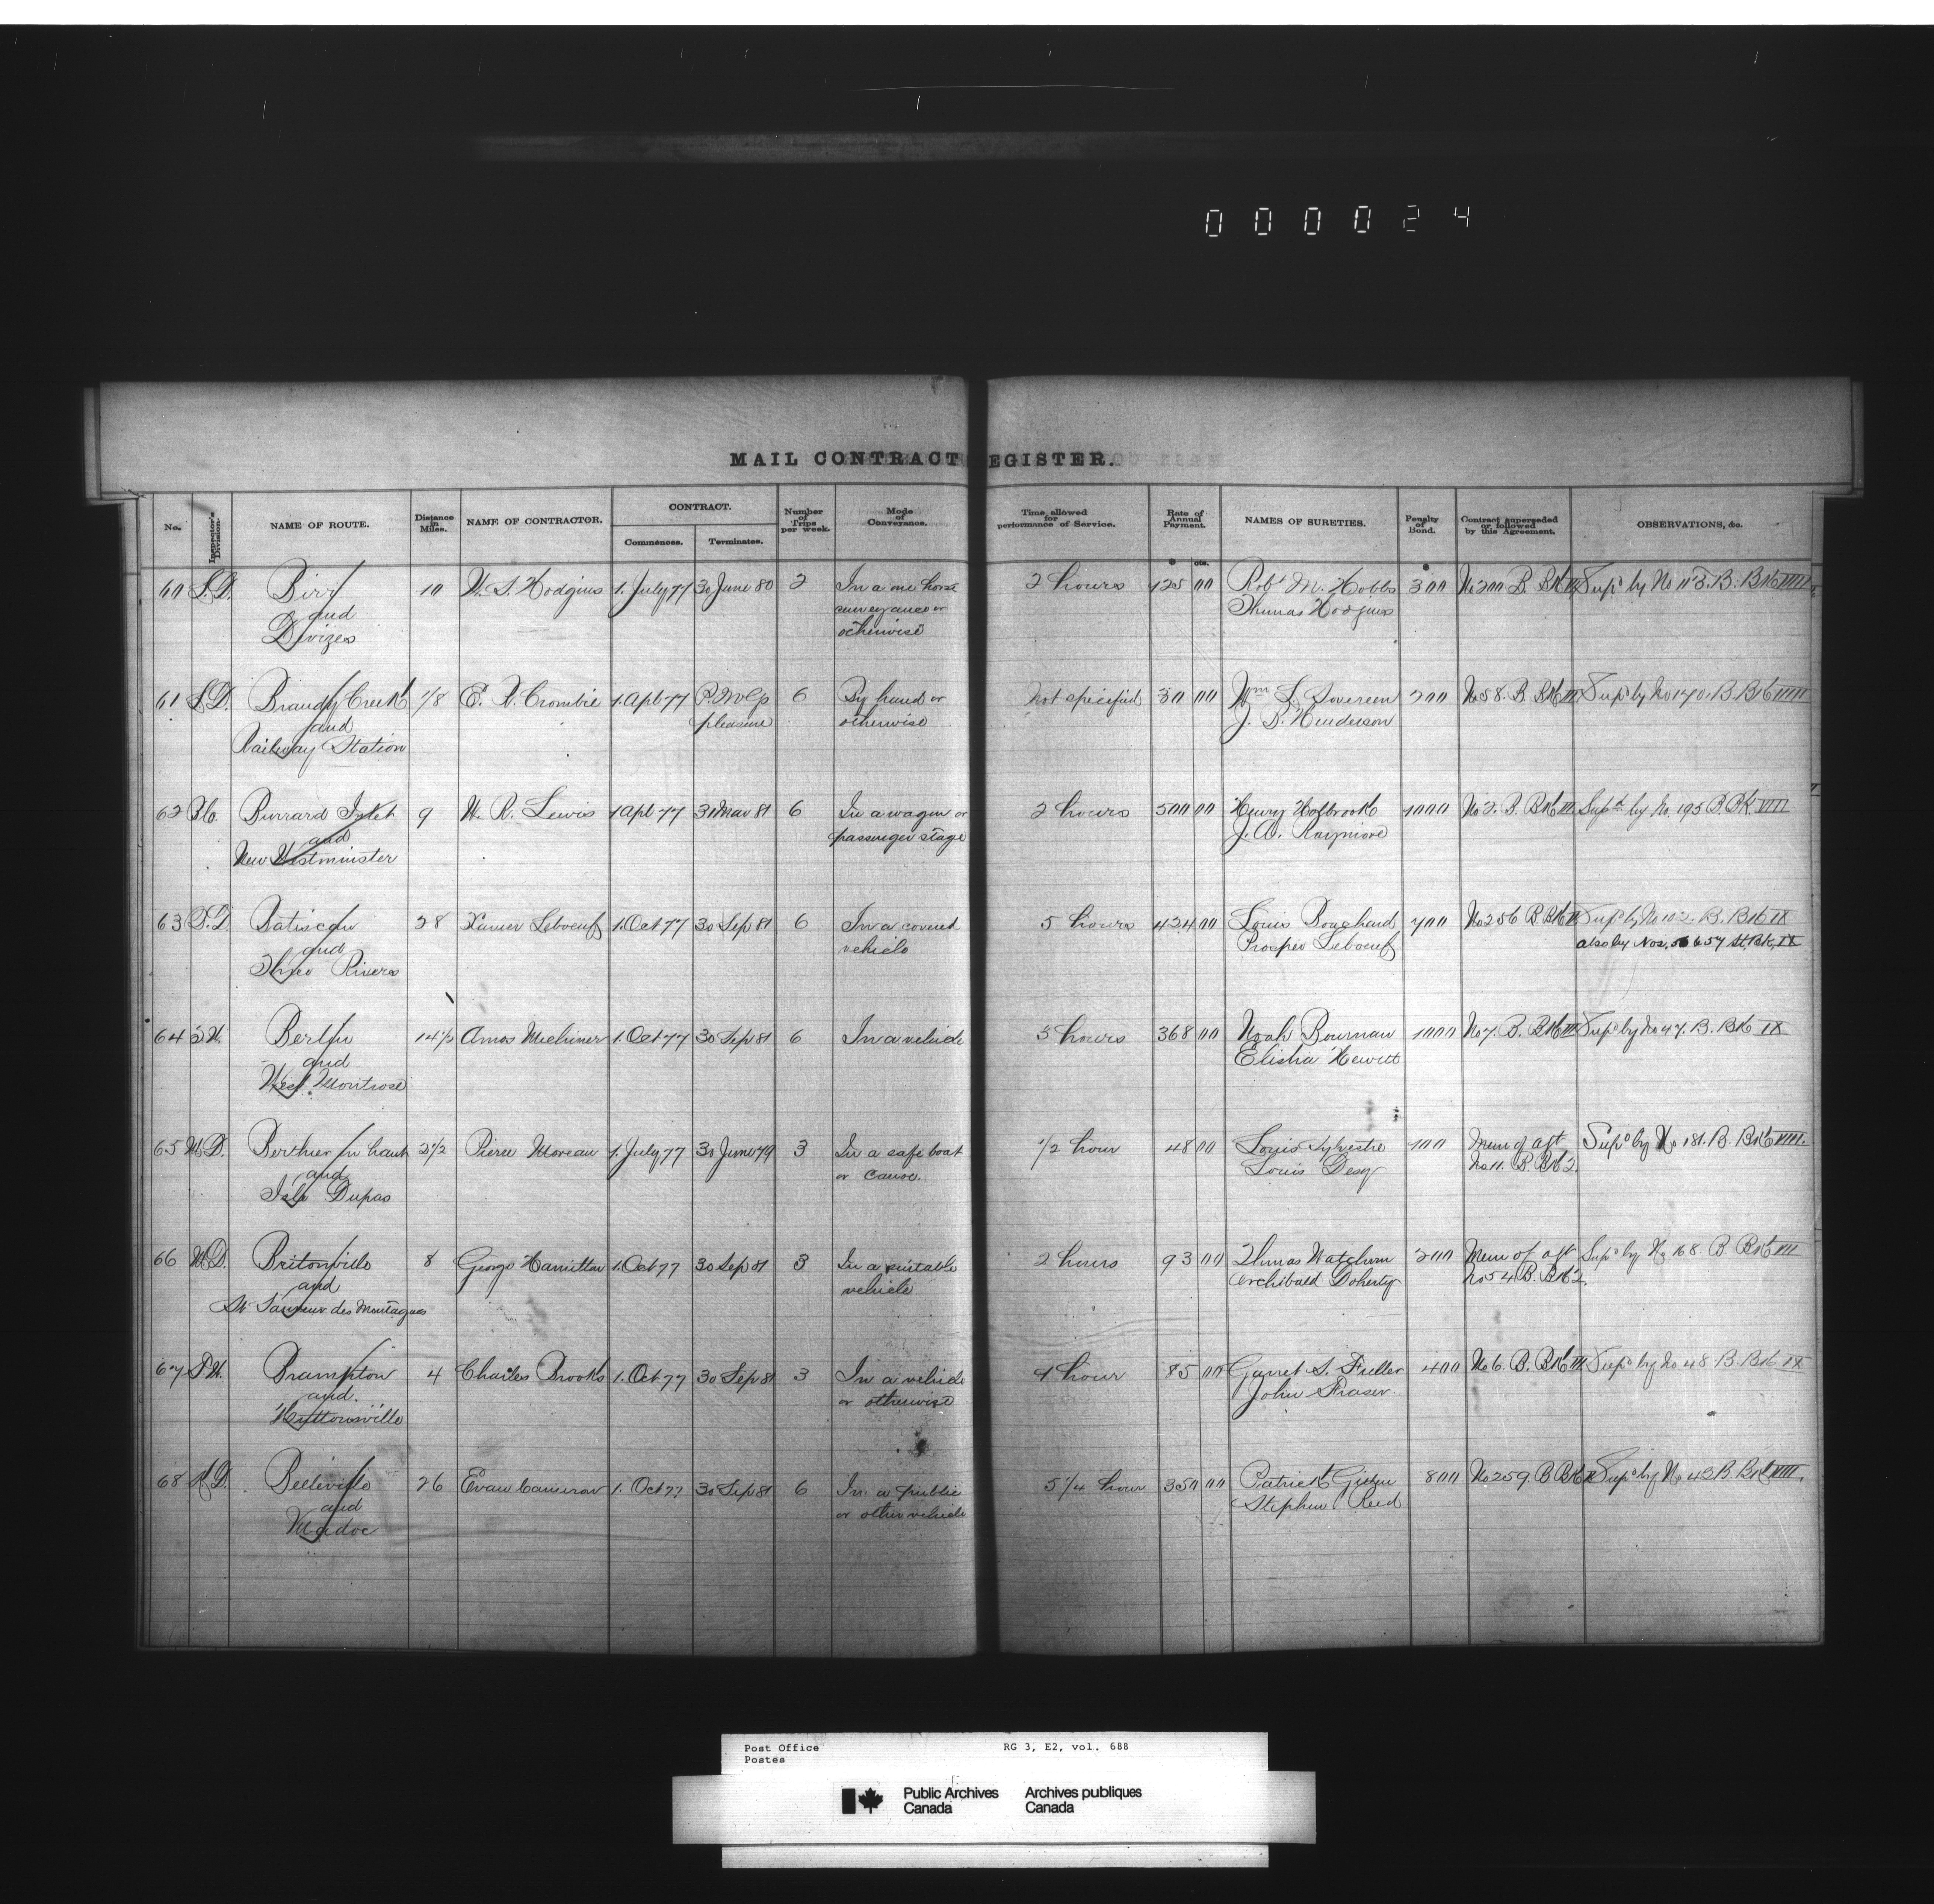 000024
MAIL CONTRACT EGISTER.
No. Inspector's Division. NAME OF ROUTE. Distance in Miles. NAME OF CONTRACTOR. CONTRACT. Commences. Terminates. Number of Trips per week. Mode of Conveyance. Time allowed for performance of Service. Rate of Annual Payment. Names of Sureties. Penalty of Bond. Contract superseded or followed by this Agreement. OBSERVATIONS, &c.
cts.
60 L.D. Birr 10 W. S. Hodgins 1. July 77 30 June 80 2 In a one horse 2 hours 125 00 Robt M. Hobbs 300 No 200 B. Supd by No 113. B. Bk VIII
and conveyance or Thomas Hodgins
Devizes otherwise
61 L.D. Brandy Creek 1/8 E. R. Crombie 1. Apl 77 P.M.G's 6 By hand or Not specified 30 00 Wm L. Sovereen 200 No 58. B. Bk III Supd by No 170. B. Bk VIII
and pleasure otherwise J. D. Henderson
Railway Station
62 B.C. Burrard Inlet 9 W. R. Lewis 1 Apl 77 31 Mar 81 6 In a wagon or 2 hours 500 00 Henry Holbrook 1000 No 2. B. Bk III Supd by No. 195 B. BK VIII
and passenger stage J. A. Raymore
New Westminster
63 Batiscan 28 Xavier Leboeuf 1. Oct 77 30 Sep 81 6 In a covered 5 hours 424 00 Louis Bouchard 700 No 256 B. Supd by No 102. B. Bk IX
and vehicle Prosper Leboeuf also by Nos, 56 & 57 St. Bk, IX
Three Rivers
64 Berlin 14 1/2 Amos Michiner 1. Oct 77 30 Sep 81 6 In a vehicle 3 hours 368 00 Noah Bowman 1000 No 7. B. Bk III Supd by No 47. B. Bk IX
and Elisha Hewitt
West Montrose
65 M.D. Berthier en haut 2 1/2 Pierre Moreau 1. July 77 30 June 79 3 In a safe boat 1/2 hour 48 00 Louis Sylvestre 100 Mem of agt Supd by No 181. B. Bk VIII
and or canoe. Louis Desy No 11. B. Bk 2.
Isle Dupas
66 M.D. Britonville 8 George Hamilton 1. Oct 77 30 Sep 81 3 In a suitable 2 hours 93 00 Thomas Watchorn 200 Mem of agt Supd by No 168. B. Bk
and vehicle Archibald Doherty No 54 B. Bk 2.
St Sauveur des Montagnes
67 Brampton 4 Charles Brooks 1. Oct 77 30 Sep 81 3 In a vehicle 1 hour 85 00 Garret S. Fuller 400 No 6. B. Bk III Supd by No 48 B. Bk IX
and. or otherwise John Fraser.
Huttonsville
68 K.D. Belleville 26 Evan Cameron 1. Oct 77 30 Sep 81 6 In a public 5 1/4 hour 350 00 Patrick 800 No 259. B. Supd by No 43 B. Bk VIII.
and or other vehicle Stephen Reid
Madoc
Post Office RG 3, E2, vol. 688
Postes
Public Archives Archives publiques
Canada Canada